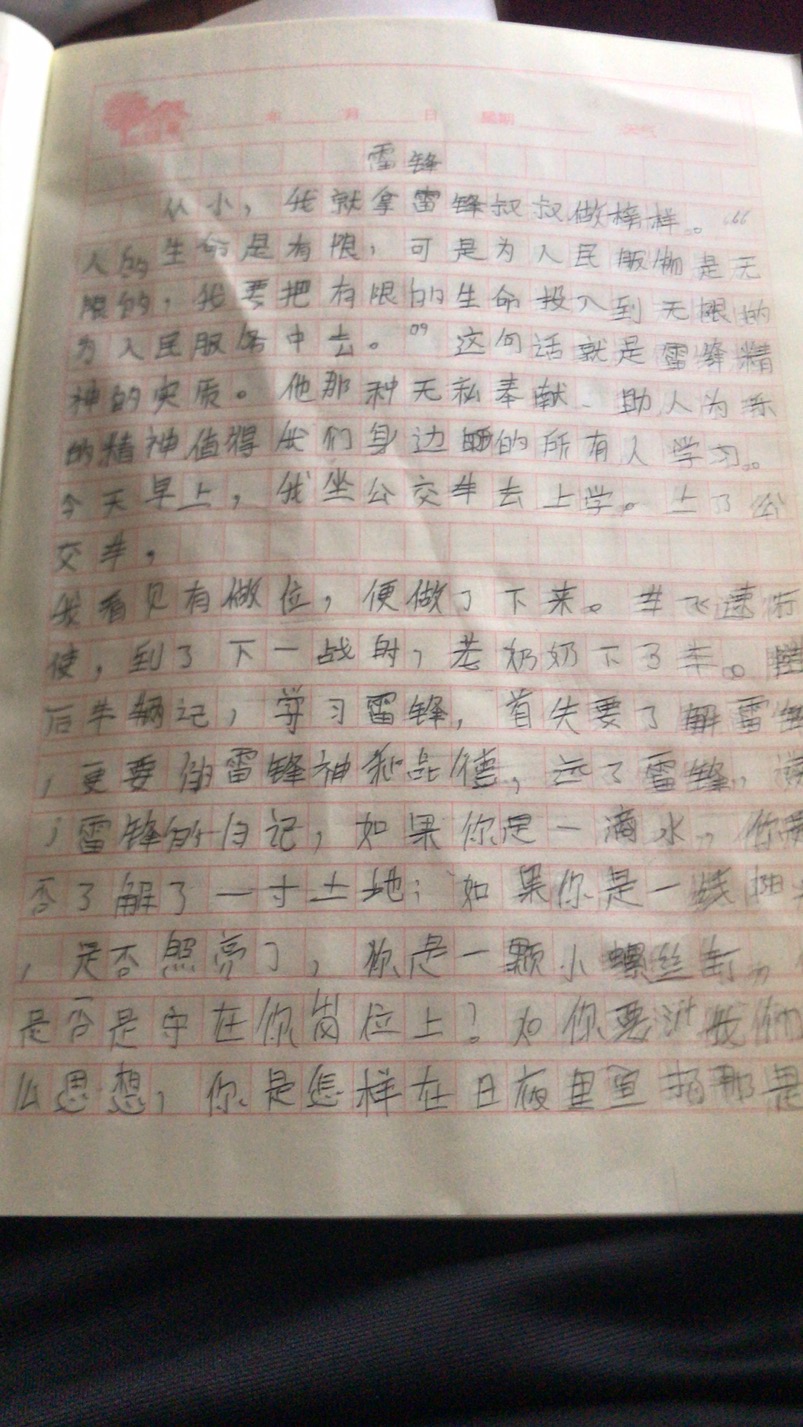 年 月 日 星期 天气
雷锋
从小，我就拿雷锋叔叔做榜样。“
人的生命是有限，可是为人民服物是无
限的，我要把有限的生命投入到无限的
为人民服务中去。” 这句话就是雷锋精
神的实质。他那种无私奉献、助人为乐
的精神值得我们身边的所有人学习。
今天早上，我坐公交车去上学。上了公
交车，
我看见有做位，便做了下来。车飞速行
使，到了下一战时，老奶奶下了车。
后车辆记，学习雷锋，首先要了解雷锋
，更要 雷锋神 品德， 了雷锋，读
了雷锋的日记，如果你是一滴水，你
否了解了一寸土地；如果你是一线
，是否照亮了，你是一颗小螺丝钉，
是否是守在你岗位上？如你要 我们
么思想，你是怎样在日夜里宣扬那是